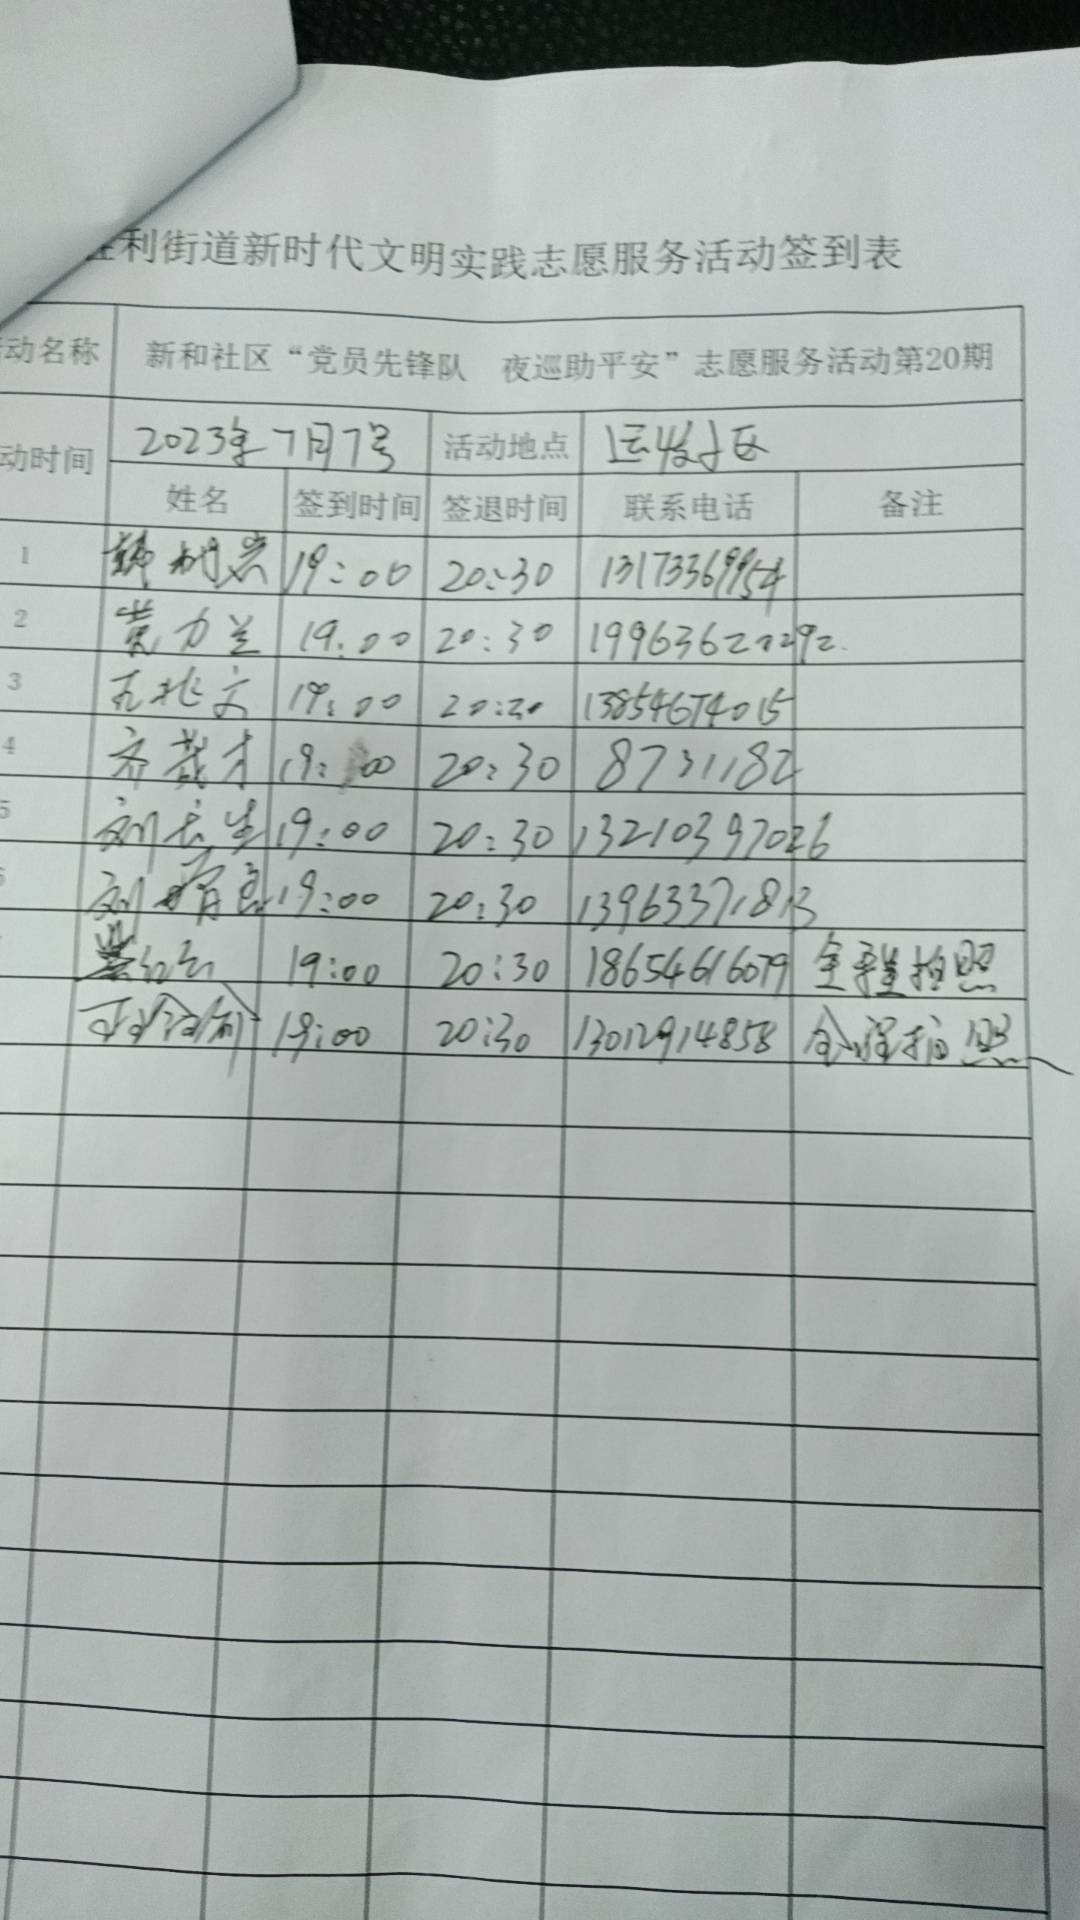 利街道新时代文明实践志愿服务活动签到表
动名称 新和社区“党员先锋队 夜巡助平安”志愿服务活动第20期
动时间 2023年7月7号 活动地点
姓名 签到时间 签退时间 联系电话 备注
1 19:00 20:30 13173369954
2 黄力兰 19:00 20:30
3 19:00 13854674015
4 19:00 20:30 8731182
5 刘长生 19:00 20:30 13210397026
刘 19:00 20:30 13963371813
19:00 20:30 18654616079 全程拍照
19:00 20:30 13012914858 全程拍照